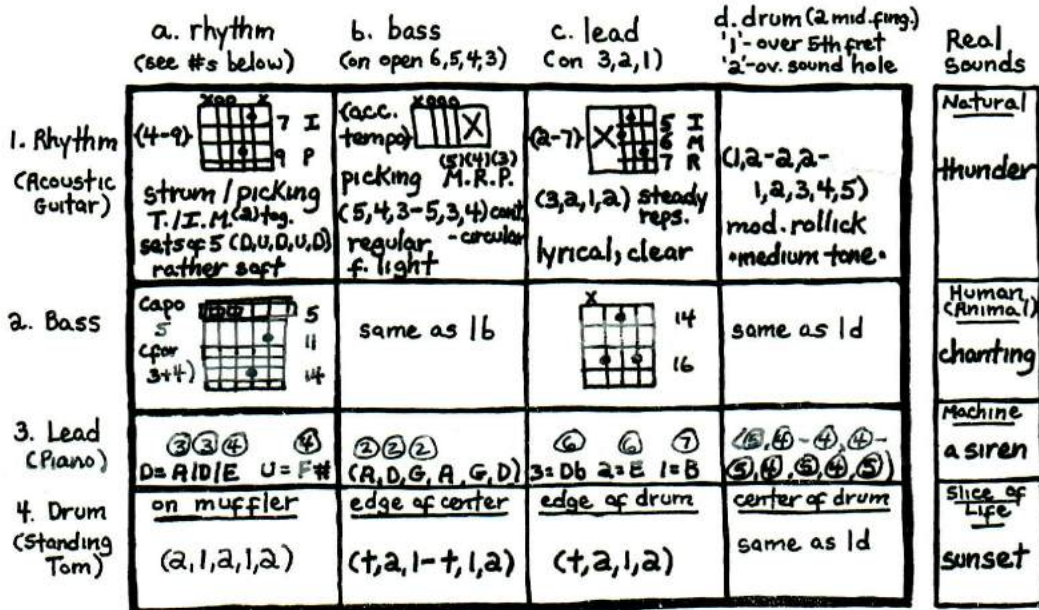 a. rhythm
(see #s below)
b. bass
(on open 6,5,4,3)
c. lead
(on 3,2,1)
d. drum (2 mid. fing.)
'1'- over 5th fret
'2'-ov. sound hole
Real
Sounds
1. Rhythm
(Acoustic
Guitar)
(4-9)
xoo x
7 I
9 P
strum/picking
T./I.M.(2)tog.
sets of 5 (D,U,D,U,D)
rather soft
(acc.
tempo)
xooo
X
(5)(4)(3)
picking M.R.P.
(5,4,3-5,3,4) cont.
regular -circular
f. light
(2-7)
X
5 I
6 M
7 R
(3,2,1,2) steady
reps.
lyrical, clear
(1,2-2,2-
1,2,3,4,5)
mod. rollick
•medium tone•
Natural
thunder
2. Bass
Capo
5
(for
3+4)
5
11
14
same as 1b
x
14
16
same as 1d
Human,
(Animal)
chanting
3. Lead
(Piano)
3 3 4 4
D=A/D/E U=F#
2 2 2
(A,D,G,A,G,D)
6 6 7
3=Db 2=E 1=B
(5,4-4,4-
5,4,5,4,5)
Machine
a siren
4. Drum
(Standing
Tom)
on muffler
(2,1,2,1,2)
edge of center
(t,2,1-t,1,2)
edge of drum
(t,2,1,2)
center of drum
same as 1d
Slice of
Life
sunset